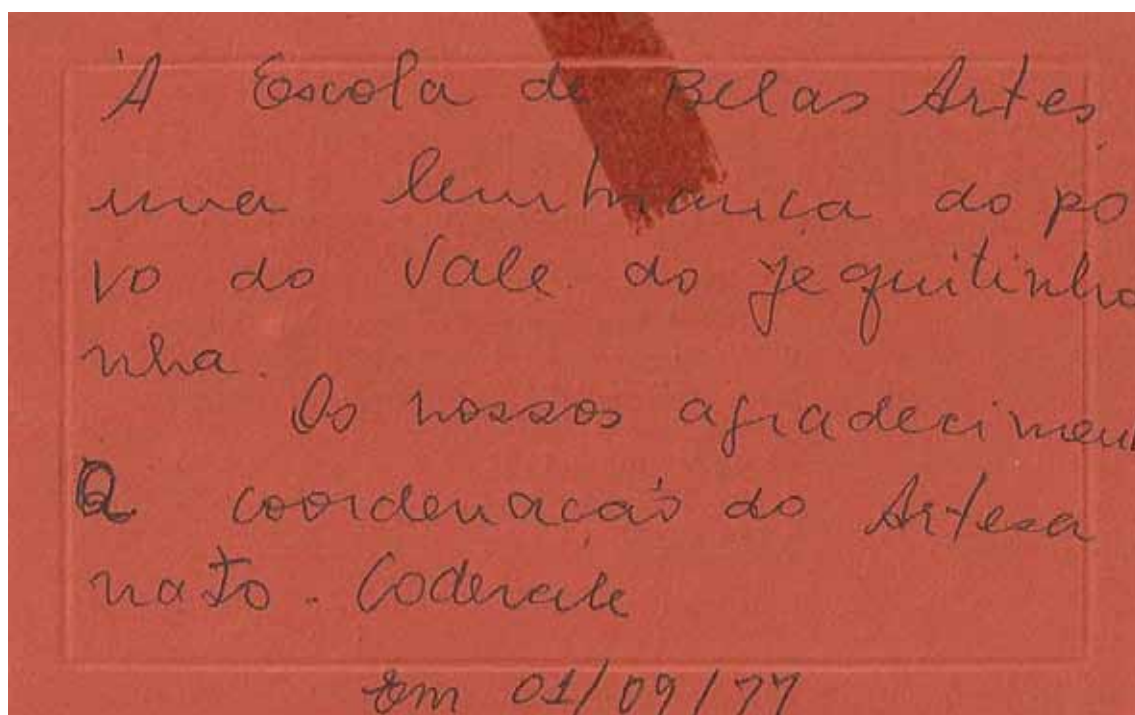 À Escola de Belas Artes,
uma lembrança do po
vo do Vale do Jequitinho
nha.
Os nossos agradecimen
a coordenação do Artesa
nato. Codevale
Em 01/09/77